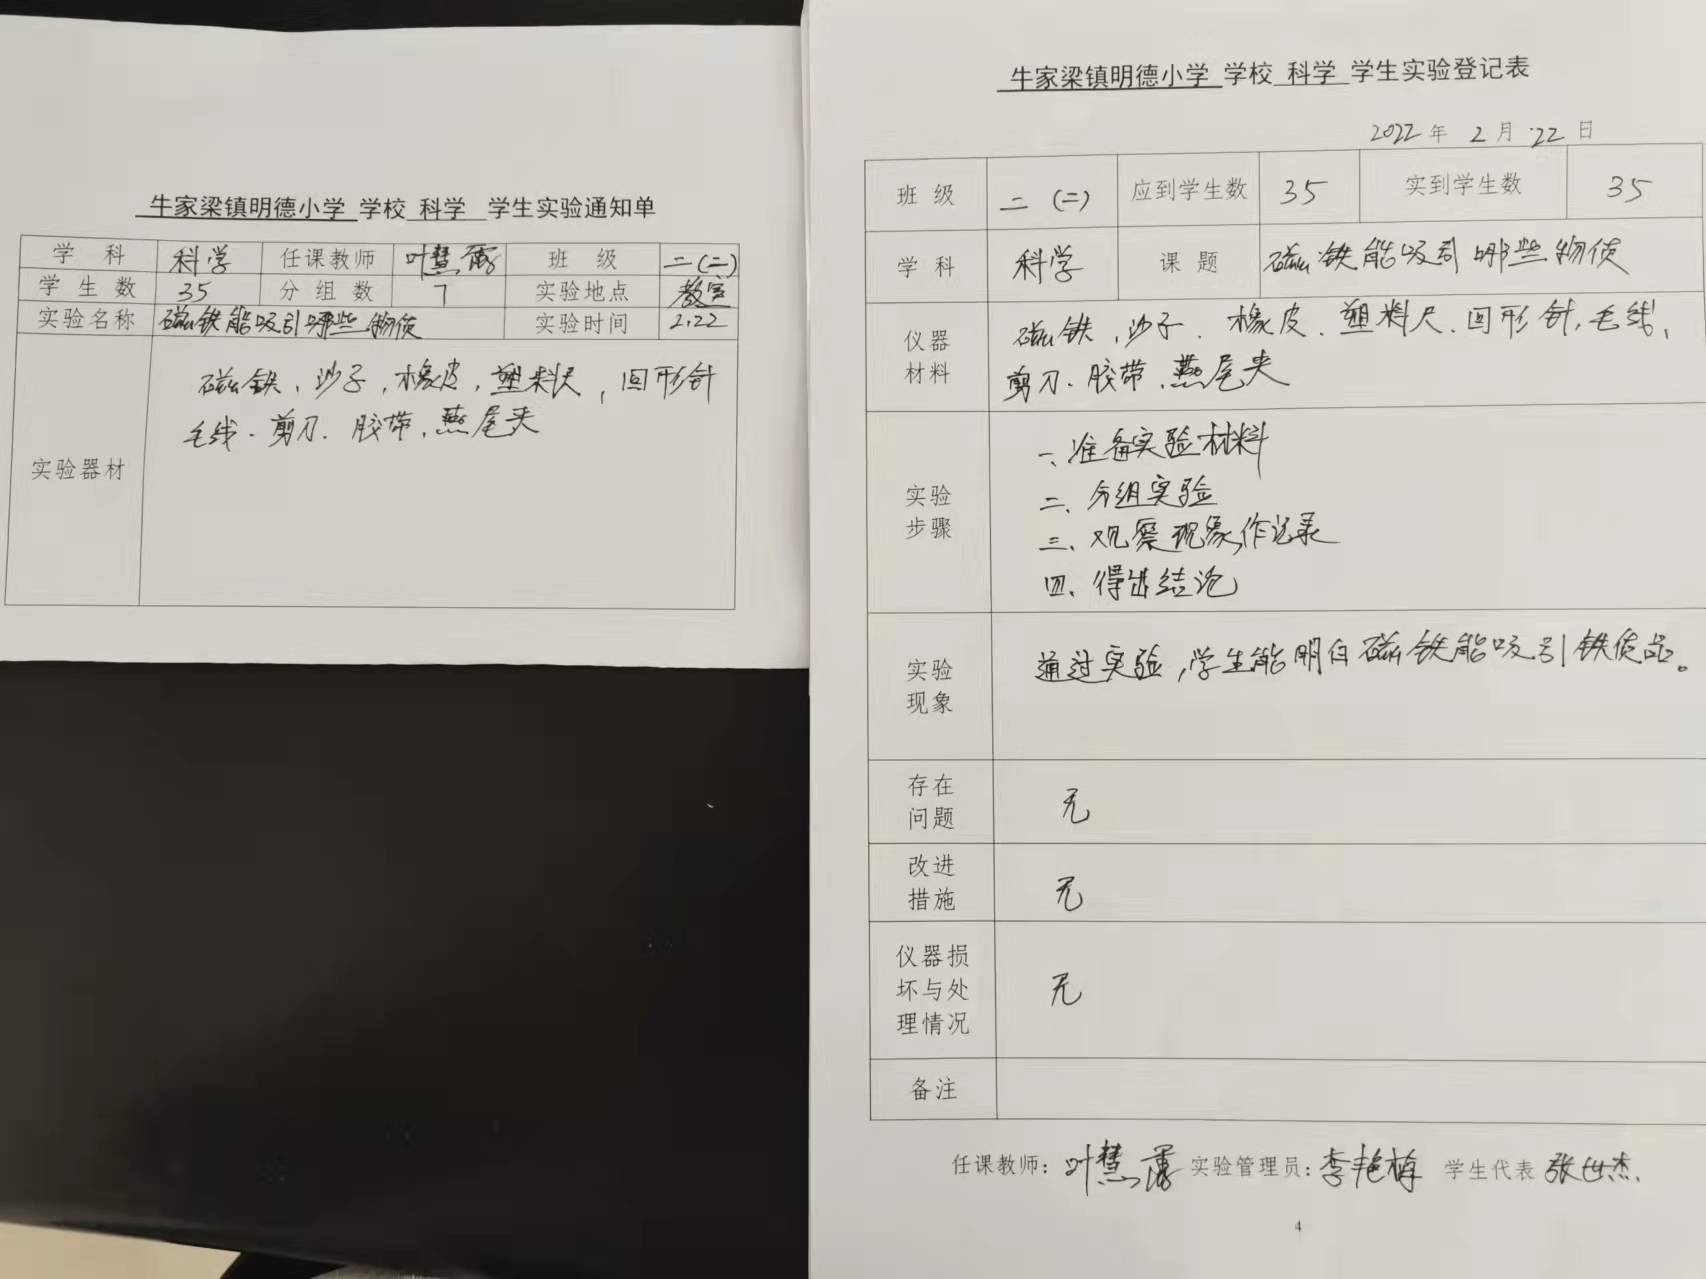 牛家梁镇明德小学 学校 科学 学生实验通知单
学 科 科学 任课教师 叶慧 班 级 二(二)
学 生 数 35 分 组 数 7 实验地点 教室
实验名称 磁铁能吸引哪些物质 实验时间 2.22
实验器材 磁铁,沙子,橡皮,塑料尺,回形针
毛线.剪刀.胶带,燕尾夹
牛家梁镇明德小学 学校 科学 学生实验登记表
2022 年 2 月 22 日
班 级 二 (二) 应到学生数 35 实到学生数 35
学 科 科学 课 题 磁铁能吸引哪些物质
仪器材料 磁铁,沙子.橡皮.塑料尺.回形针,毛线,
剪刀.胶带.燕尾夹
实验步骤 一、准备实验材料
二、分组实验
三、观察现象,作记录
四、得出结论
实验现象 通过实验,学生能明白磁铁能吸引铁质品。
存在问题 无
改进措施 无
仪器损坏与处理情况 无
备注
任课教师: 叶慧 实验管理员: 李艳梅 学生代表 张世杰.
4